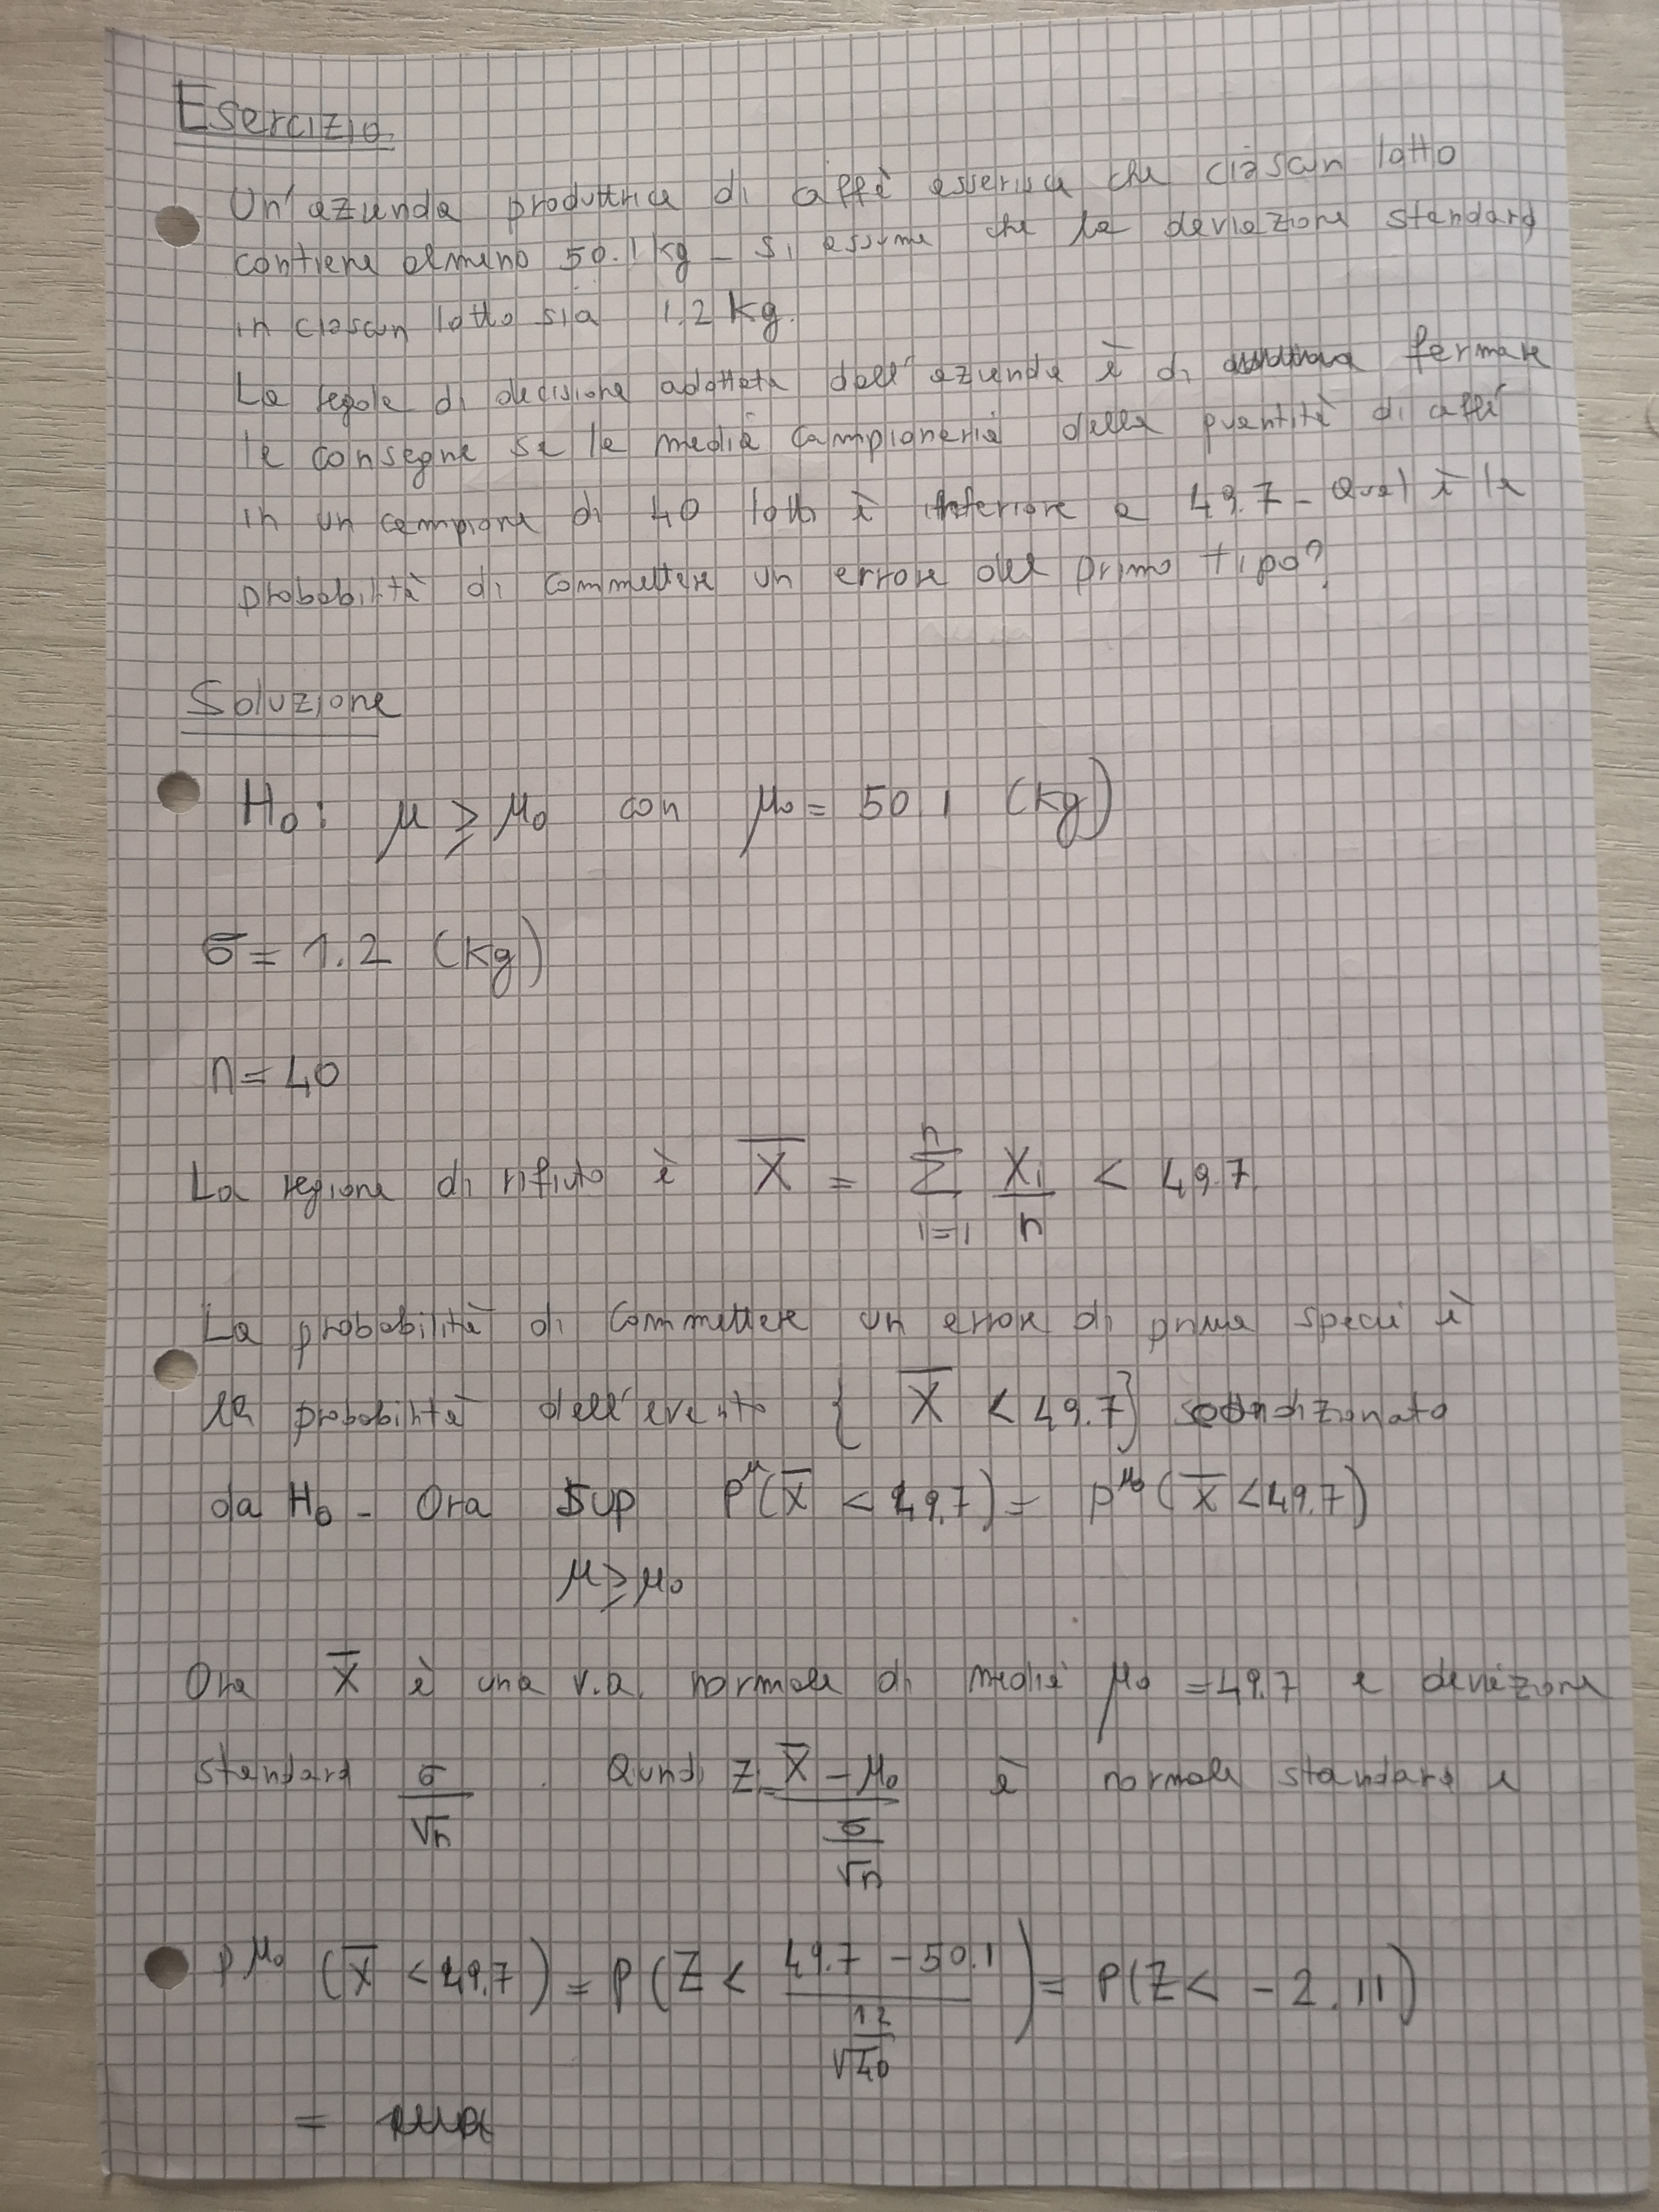 Esercizio
Un'azienda produttrice di caffè asserisce che ciascun lotto
contiene almeno 50.1 kg - Si assume che la deviazione standard
in ciascun lotto sia 1.2 kg.
La regola di decisione adottata dall'azienda è di fermare
le consegne se la media campionaria della quantità di caffè
in un campione di 40 lotti è inferiore a 49.7 - Qual è la
probabilità di commettere un errore del primo tipo?
Soluzione
H₀: μ ≥ μ₀ con μ₀ = 50.1 (kg)
σ = 1.2 (kg)
n = 40
La regione di rifiuto è X̄ = Σ_{i=1}^{n} X_i/n < 49.7
La probabilità di commettere un errore di prima specie è
la probabilità dell'evento { X̄ < 49.7} condizionato
da H₀ - Ora Sup P^μ(X̄ < 49.7) = P^μ₀(X̄ < 49.7)
μ ≥ μ₀
Ora X̄ è una v.a. normale di media μ₀ = 49.7 e deviazione
standard σ/√n. Quindi Z = (X̄ - μ₀)/(σ/√n) è normale standard e
P^μ₀ (X̄ < 49.7) = P(Z < (49.7 - 50.1)/(1.2/√40)) = P(Z < - 2.11)
=